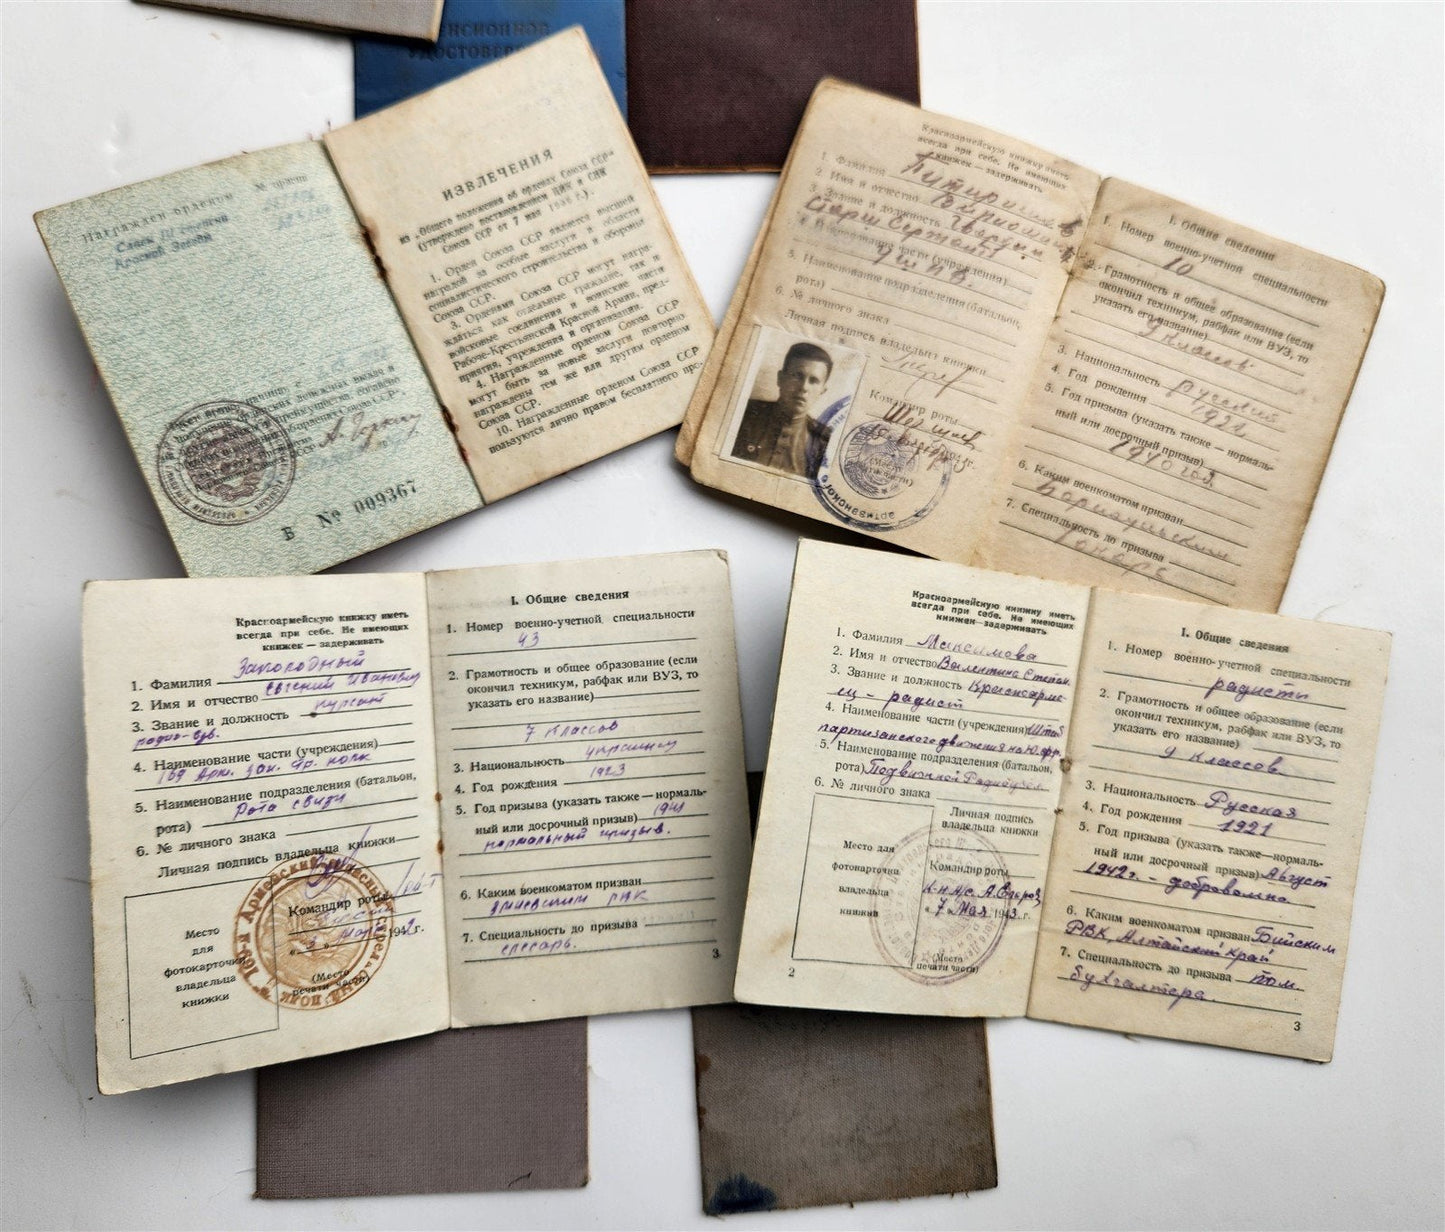 ПЕНСИОННОЕ
УДОСТОВЕР
Награжден орденом № ордена
Слава III степени
Красной Звезды
Б № 009367
ИЗВЛЕЧЕНИЯ
из „Общего положения об орденах Союза ССР"
(утверждено постановлением ЦИК и СНК
Союза ССР от 7 мая 1936 г.).
1. Орден Союза ССР является высшей
наградой за особые заслуги в области
социалистического строительства и обороны
Союза ССР.
3. Орденами Союза ССР могут награ-
ждаться как отдельные граждане, так и
войсковые соединения и воинские части
Рабоче-Крестьянской Красной Армии, пред-
приятия, учреждения и организации.
4. Награжденные орденом Союза ССР
могут быть за новые заслуги повторно
награждены тем же или другим орденом
Союза ССР.
10. Награжденные орденом Союза ССР
пользуются лично правом бесплатного про-
Красноармейскую книжку иметь
всегда при себе. Не имеющих
книжек — задерживать
1. Фамилия
2. Имя и отчество
3. Звание и должность Гвардии
Старш Сержант
4. Наименование части (учреждения)
5. Наименование подразделения (батальон,
рота)
6. № личного знака
Личная подпись владельца книжки
Командир роты
I. Общие сведения
1. Номер военно-учетной специальности
10
2. Грамотность и общее образование (если
окончил техникум, рабфак или ВУЗ, то
указать его название)
9 классов
3. Национальность русский
4. Год рождения 1921
5. Год призыва (указать также — нормаль-
ный или досрочный призыв)
1940 год
6. Каким военкоматом призван
Барнаульским
7. Специальность до призыва
токарь
Красноармейскую книжку иметь
всегда при себе. Не имеющих
книжек — задерживать
1. Фамилия Загородный
2. Имя и отчество Евгений Иванович
3. Звание и должность курсант
радио-взв.
4. Наименование части (учреждения)
169 Арм. Зап. Стр. полк
5. Наименование подразделения (батальон,
рота) Рота связи
6. № личного знака
Личная подпись владельца книжки
Командир роты
„3" Марта 1942 г.
(Место
печати части)
Место
для
фотокарточки
владельца
книжки
I. Общие сведения
1. Номер военно-учетной специальности
43
2. Грамотность и общее образование (если
окончил техникум, рабфак или ВУЗ, то
указать его название)
7 классов
3. Национальность украинец
4. Год рождения 1923
5. Год призыва (указать также — нормаль-
ный или досрочный призыв) 1941
нормальный призыв.
6. Каким военкоматом призван
Змиевским РВК
7. Специальность до призыва
слесарь.
3
Красноармейскую книжку иметь
всегда при себе. Не имеющих
книжек — задерживать
1. Фамилия Максимова
2. Имя и отчество Валентина Степан
3. Звание и должность Красноарме-
ец - радист
4. Наименование части (учреждения) Штаб
партизанского движения на Ю. фр.
5. Наименование подразделения (батальон,
рота) Подвижной Радиоузел
6. № личного знака
Личная подпись
владельца книжки
Место для
фотокарточки
владельца
книжки
Командир роты
К-н А/С. А. Егоров
„7" Мая 1943 г.
(Место
печати части)
2
I. Общие сведения
1. Номер военно-учетной специальности
радисты
2. Грамотность и общее образование (если
окончил техникум, рабфак или ВУЗ, то
указать его название)
9 классов
3. Национальность Русская
4. Год рождения 1921
5. Год призыва (указать также — нормаль-
ный или досрочный призыв) Август
1942г. - добровольно
6. Каким военкоматом призван Бийским
РВК, Алтайский край
7. Специальность до призыва пом.
бухгалтера.
3